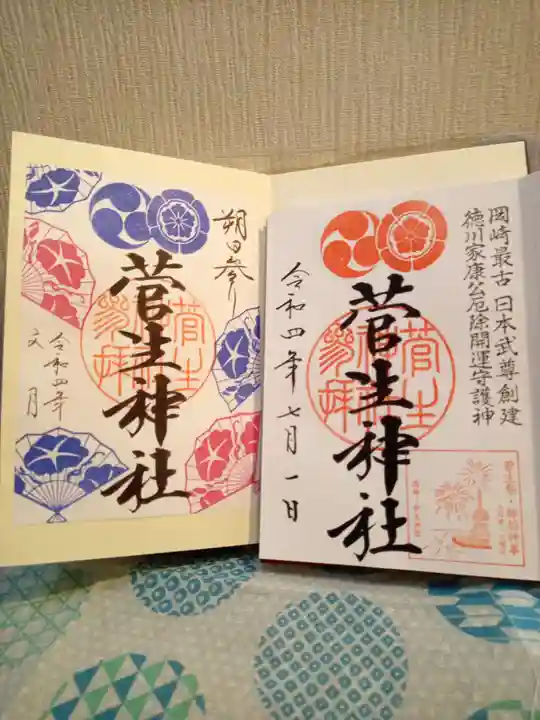 岡崎最古 日本武尊創建
徳川家康公厄除開運守護神
菅生神社
令和四年七月一日
朔日参り
菅生神社
令和四年
文月